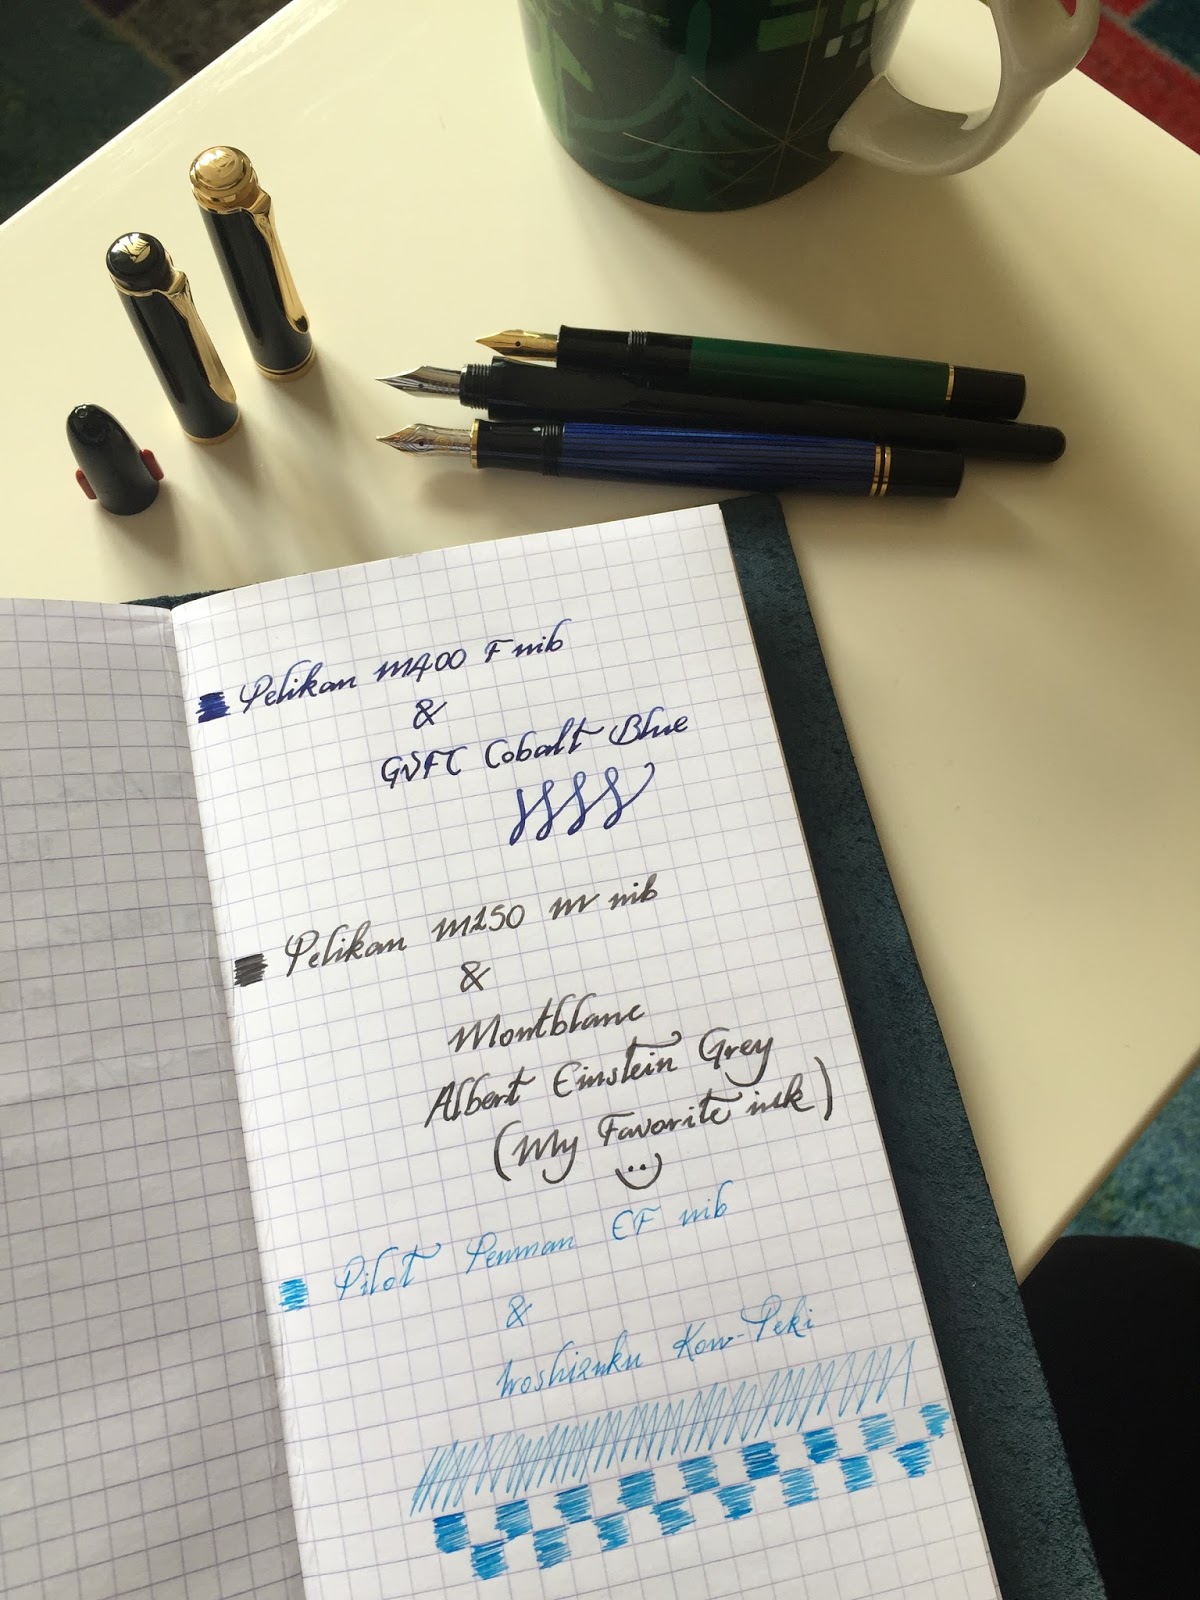 Pelikan M400 F nib
&
GvFC Cobalt Blue
Pelikan M250 M nib
&
Montblanc
Albert Einstein Grey
(My Favorite ink)
Pilot Penman EF nib
&
Iroshizuku Kon-Peki